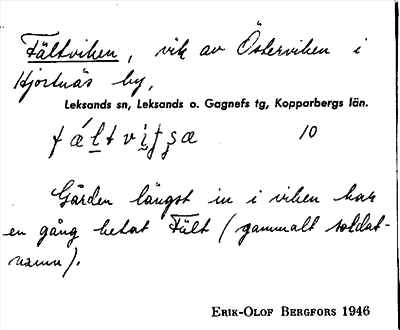 Fältviken, vik av Österviken i
Hjortnäs by,
Leksands sn, Leksands o. Gagnefs tg, Kopparbergs län.
10
Gården längst in i viken har
en gång hetat Fält (gammalt soldat-
namn).
ERIK-OLOF BERGFORS 1946